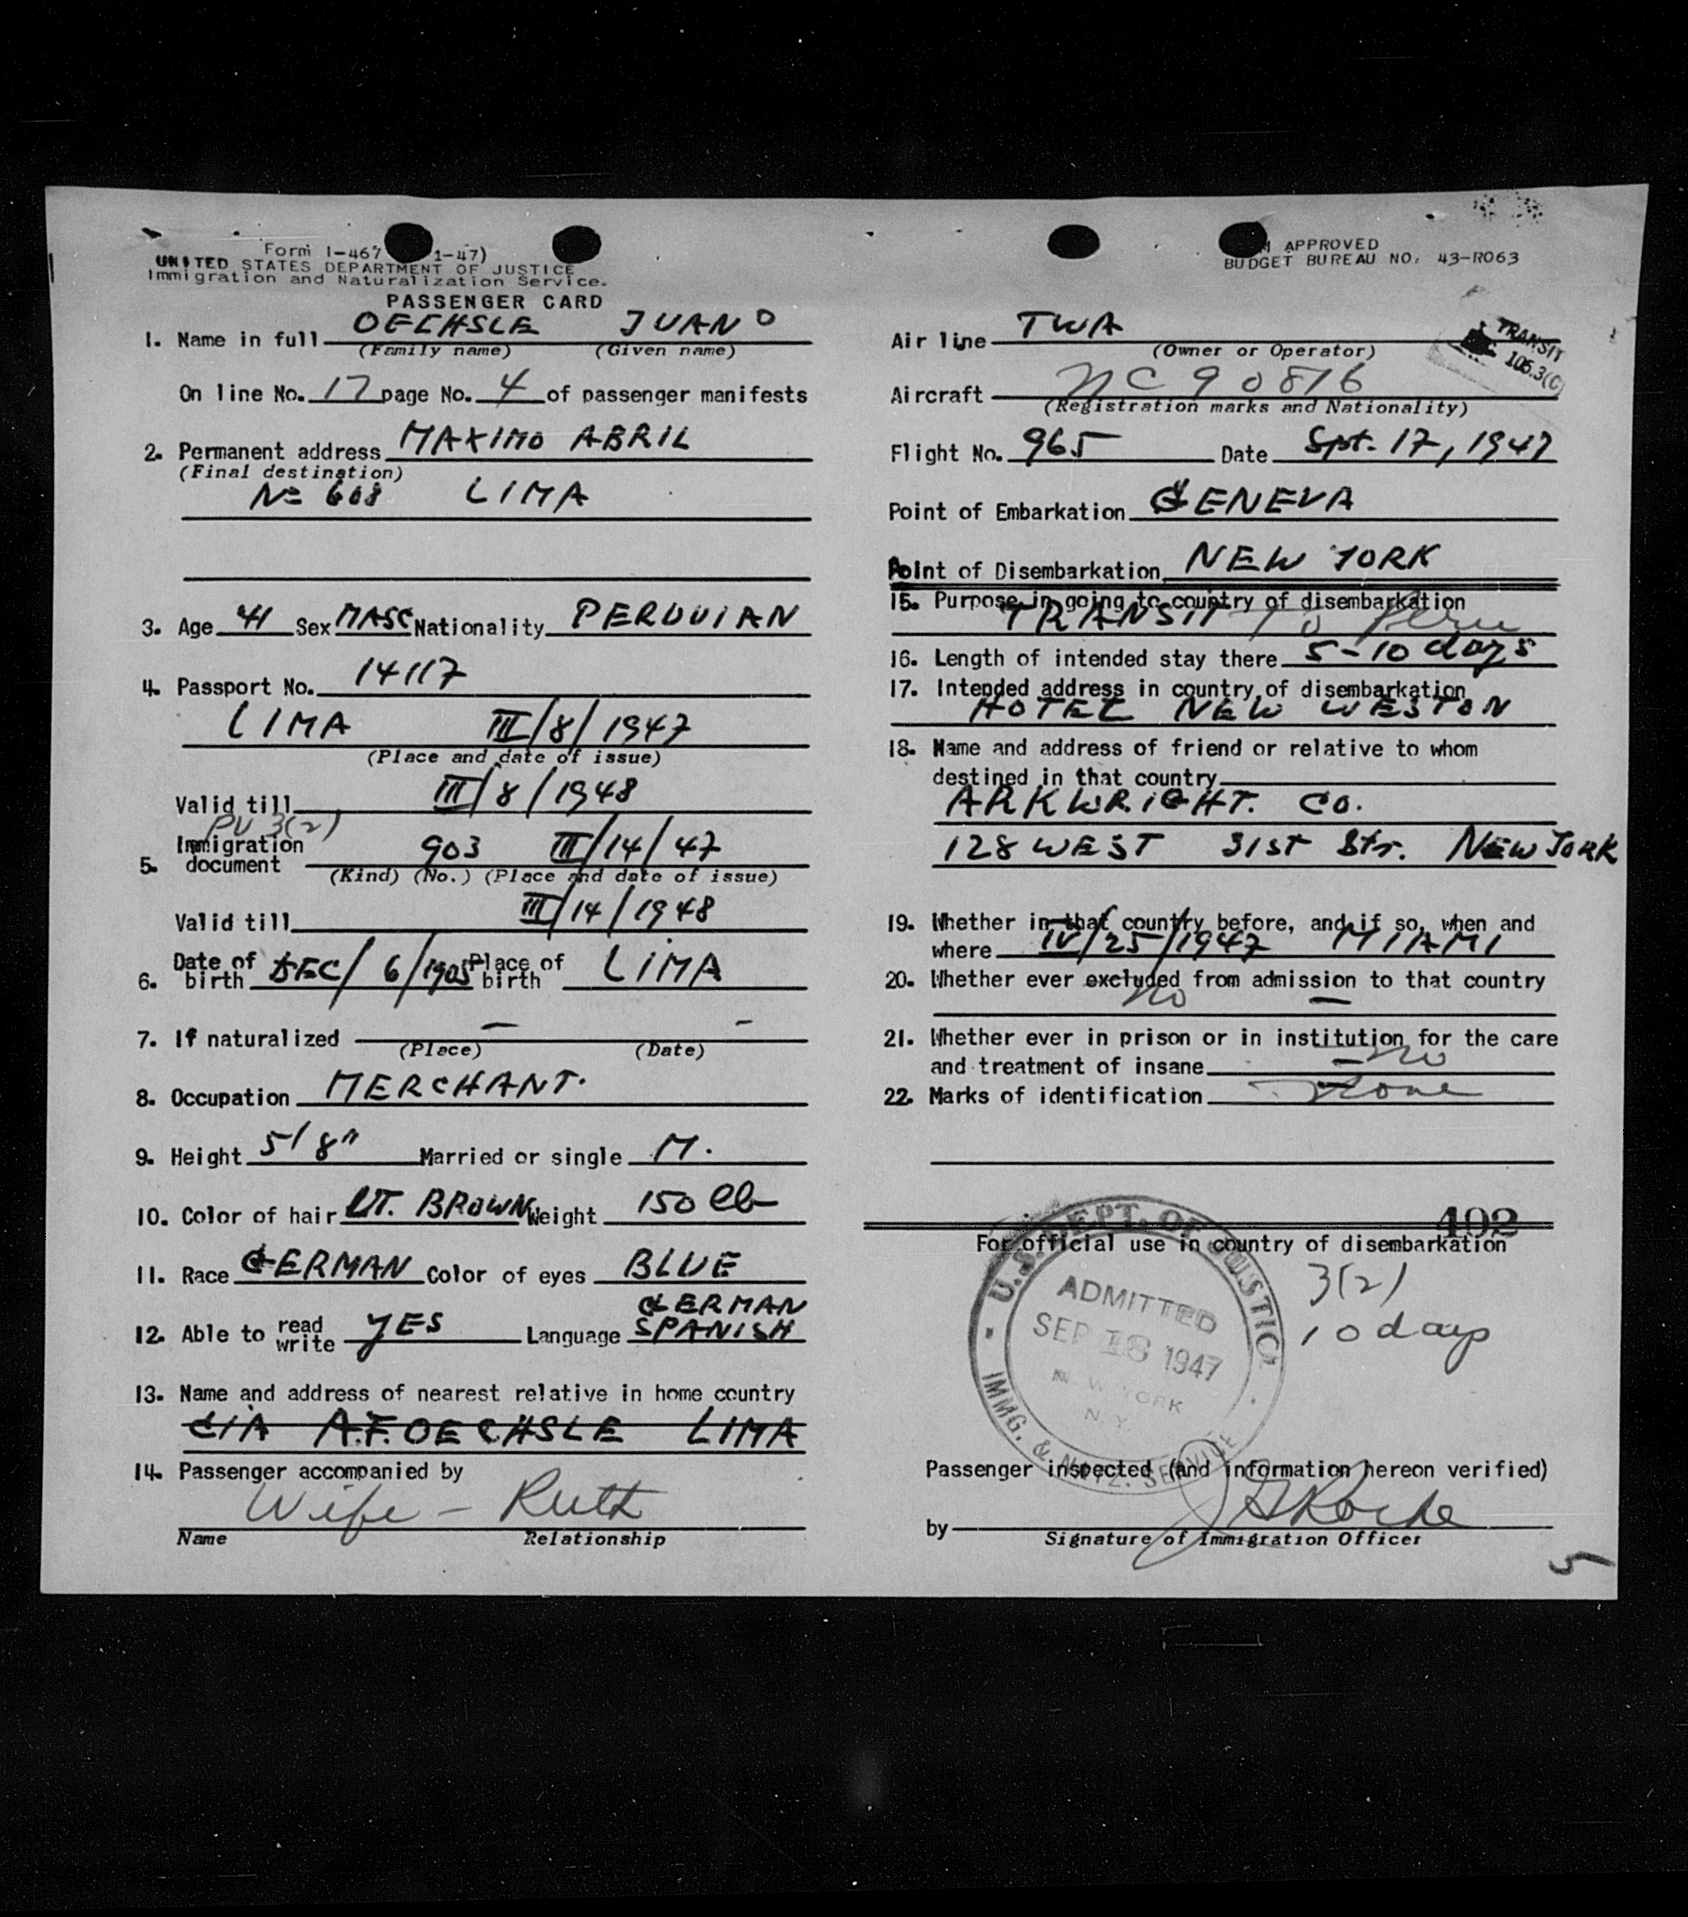 Form I-467 1-47)
UNITED STATES DEPARTMENT OF JUSTICE
Immigration and Naturalization Service.
PASSENGER CARD
1. Name in full OECHSLE JUAN O
(Family name) (Given name)
On line No. 17 page No. 4 of passenger manifests
2. Permanent address MAXIMO ABRIL
(Final destination)
No 608 LIMA
3. Age 41 Sex MASC Nationality PERUVIAN
4. Passport No. 14117
LIMA III/8/1947
(Place and date of issue)
Valid till III/8/1948
PV 3(2)
5. Immigration document 903 III/14/47
(Kind) (No.) (Place and date of issue)
Valid till III/14/1948
6. Date of birth DEC/6/1905 Place of birth LIMA
7. If naturalized — -
(Place) (Date)
8. Occupation MERCHANT.
9. Height 5/8" Married or single M.
10. Color of hair LIT. BROWN Weight 150 lb
11. Race GERMAN Color of eyes BLUE
GERMAN
12. Able to read write YES Language SPANISH
13. Name and address of nearest relative in home country
CIA A.F. OECHSLE LIMA
14. Passenger accompanied by
Wife - Ruth
Name Relationship
APPROVED
BUDGET BUREAU NO. 43-R063
Air line TWA
(Owner or Operator)
TRANSIT
105.3(C)
Aircraft NC 90816
(Registration marks and Nationality)
Flight No. 965 Date Spt. 17, 1947
Point of Embarkation GENEVA
Point of Disembarkation NEW YORK
15. Purpose in going to country of disembarkation
TRANSIT to Peru
16. Length of intended stay there 5-10 days
17. Intended address in country of disembarkation
HOTEL NEW WESTON
18. Name and address of friend or relative to whom
destined in that country
ARKWRIGHT. CO.
128 WEST 31st Str. NEW YORK
19. Whether in that country before, and if so, when and
where IV/25/1947 MIAMI
20. Whether ever excluded from admission to that country
No —
21. Whether ever in prison or in institution for the care
and treatment of insane — No
22. Marks of identification None
402
For official use in country of disembarkation
3(2)
10 days
U.S. DEPT. OF JUSTICE
ADMITTED
SEP 18 1947
NEW YORK
N.Y.
IMMG. & NATZ. SERVICE
Passenger inspected (and information hereon verified)
by
Signature of Immigration Officer
5